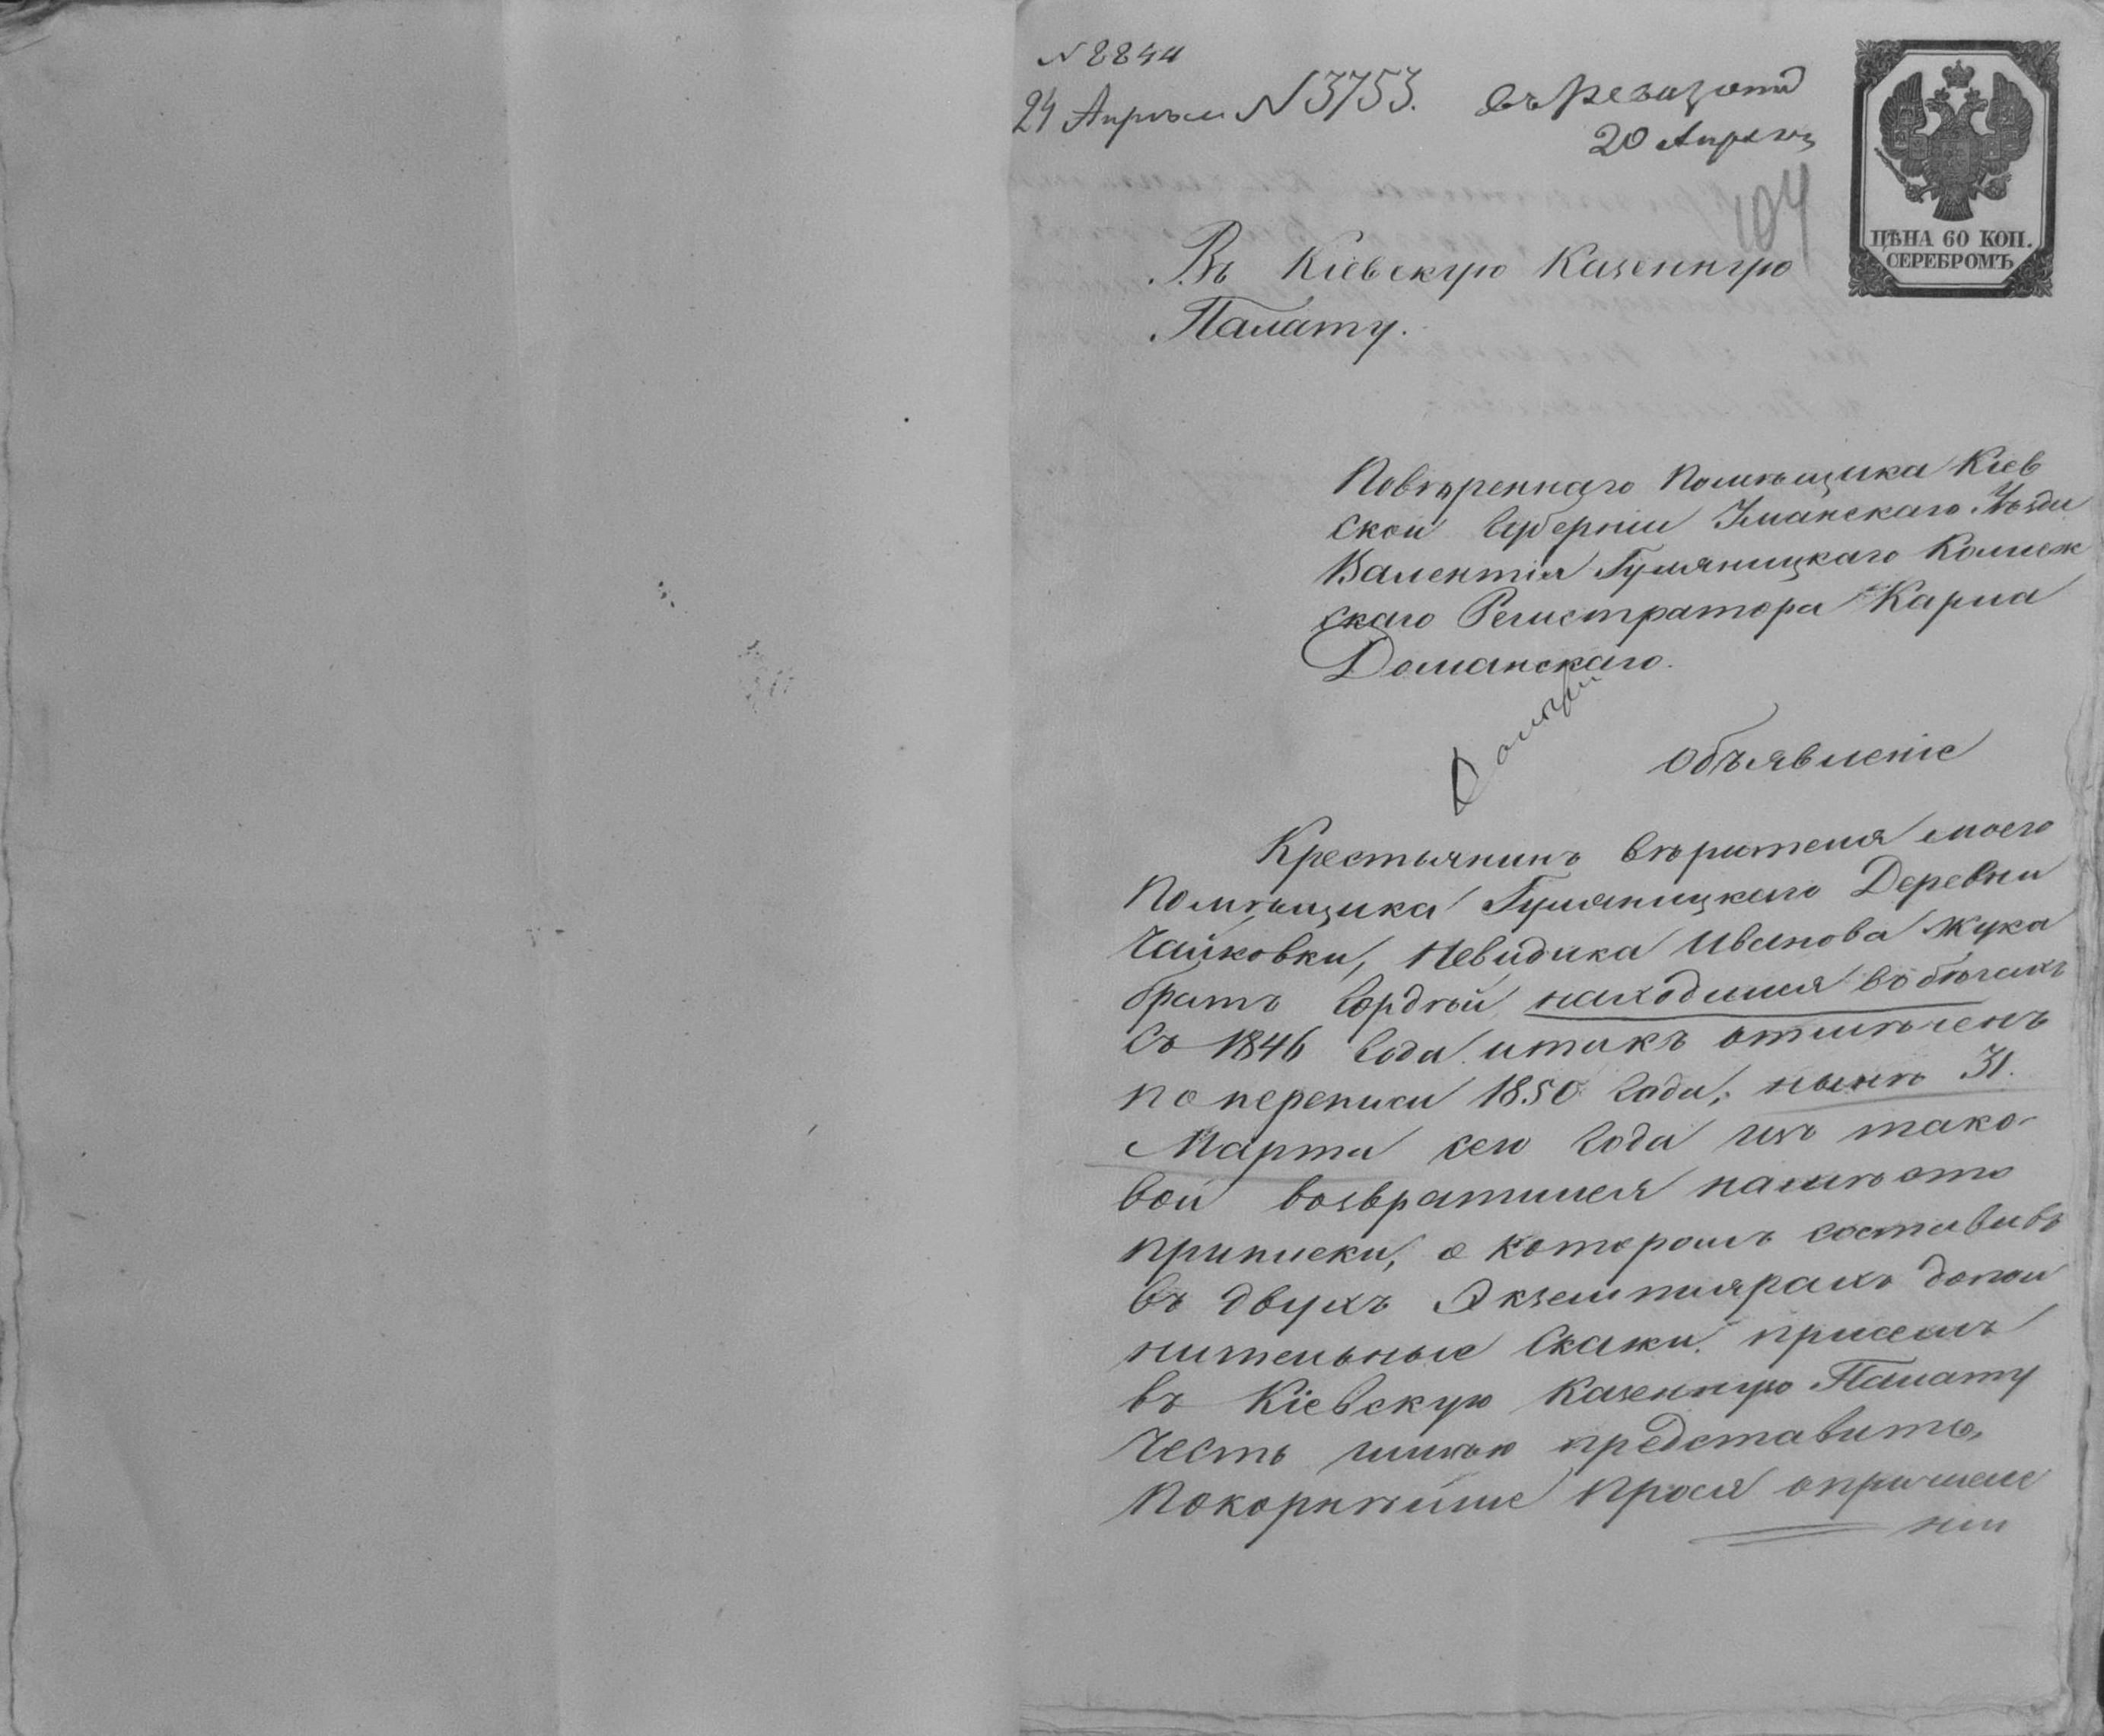 N 8844
24 Апрѣля N 3753.
20 Апрѣля
104
ЦѢНА 60 КОП.
СЕРЕБРОМЪ
Въ Кіевскую Казенную
Палату.
Повѣреннаго Помѣщика Кіев
ской Губерніи Уманскаго Уѣзда
Валентія Гумяницкаго Коллеж
скаго Регистратора Карла
Доманскаго.
Объявленіе
Крестьянинъ вѣрителя моего
Помѣщика Гумяницкаго Деревни
Чайковки, Иванова Жука
братъ Гордѣй находился въ бѣгахъ
Съ 1846 Года итакъ отмѣченъ
по переписи 1850 Года, нынѣ 31.
Марта сего Года изъ тако-
вой возвратился намѣсто
приписки, о которомъ составивъ
въ двухъ Экземплярахъ допол
нительные Скажи. присемъ
въ Кіевскую Казенную Палату
Честь имѣю представить,
Покорнѣйше прося опричисле
ніи